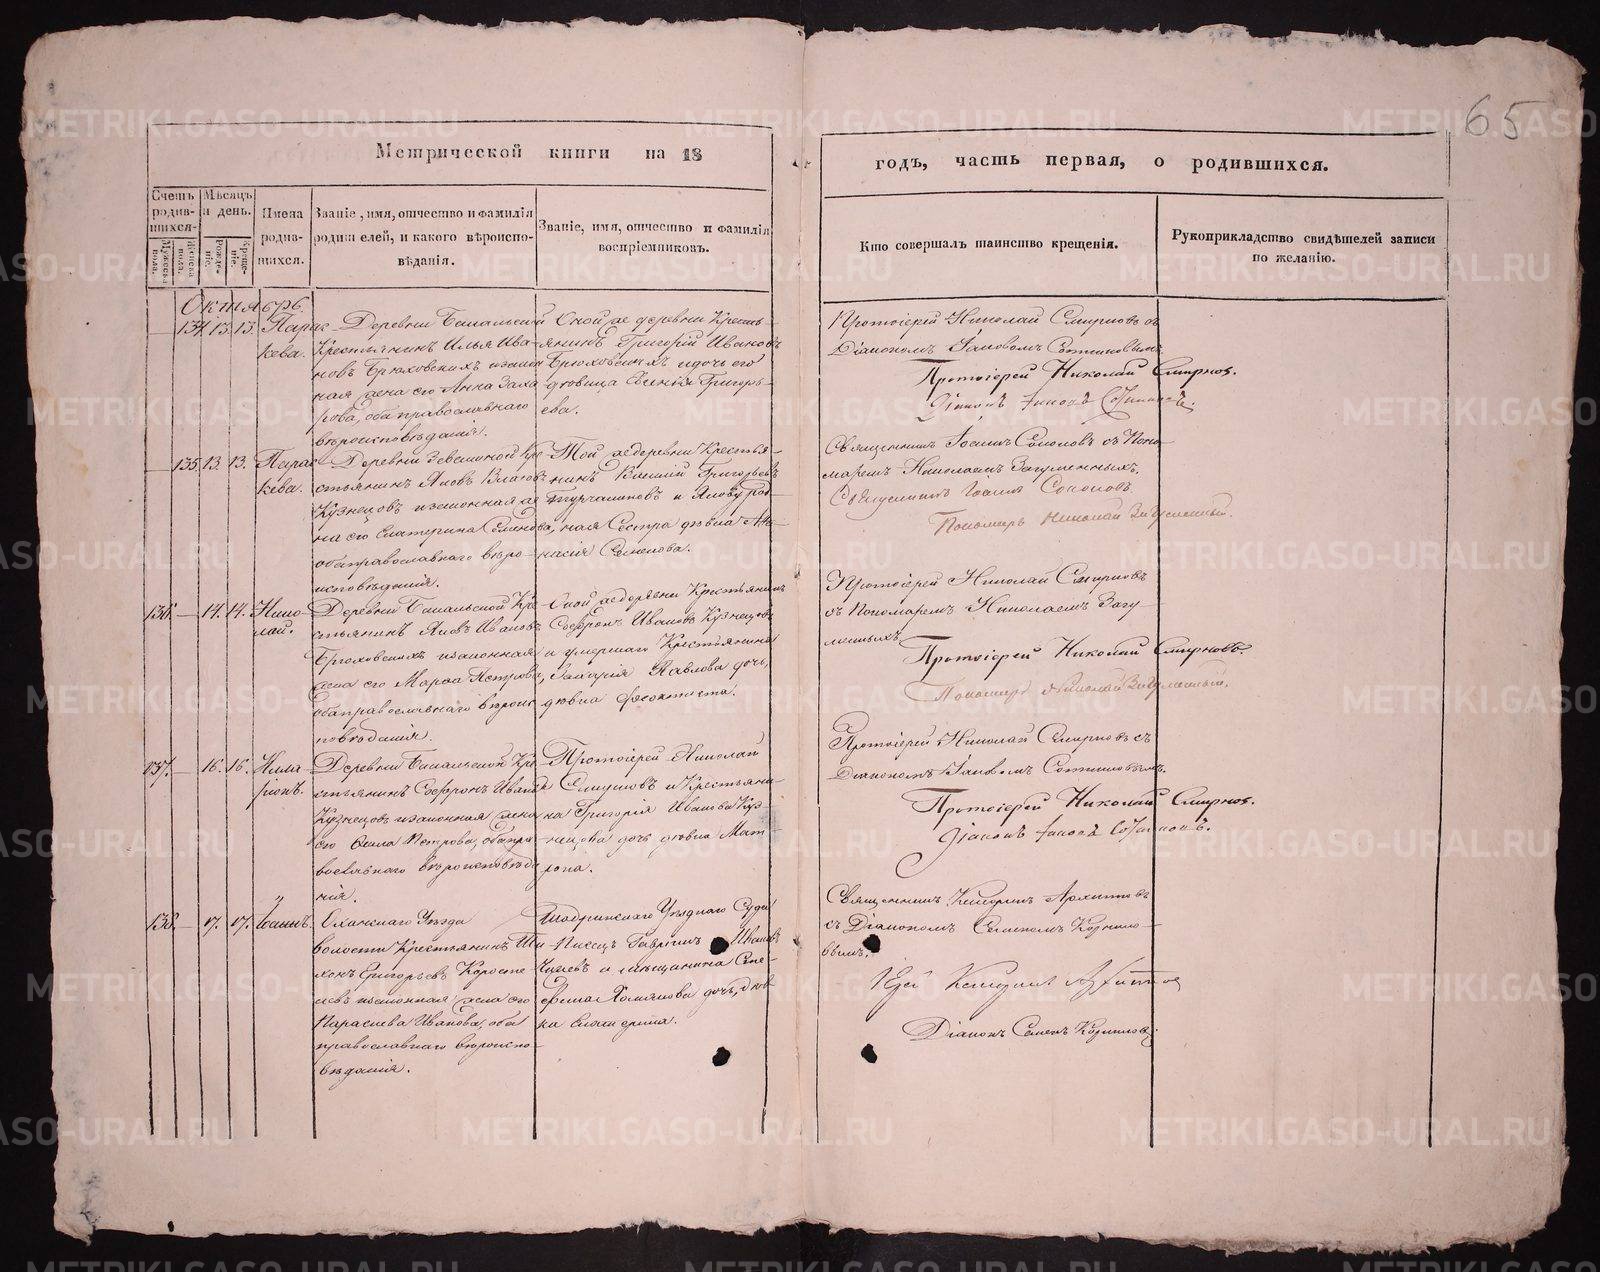 65
Метрической книги на 18
годъ, часть первая, о родившихся.
Счетъ родив-шихся.
Мужеска пола.
Женска пола.
Мѣсяцъ и день.
Рожде-ніе.
Креще-ніе.
Имена родив-шихся.
Званіе, имя, отчество и фамилія
родителей, и какого вѣроиспо-
вѣданія.
Званіе, имя, отчество и фамилія
воспріемниковъ.
Кто совершалъ таинство крещенія.
Рукоприкладство свидѣтелей записи
по желанію.
Октябрь
134. 13. 13. Парас-
кева.
Деревни
Крестьянинъ Илья Ива-
новъ Брюховскихъ и закон
ная жена его Анна Заха
рова, оба православнаго
вѣроисповѣданія.
Оной же деревни Кресть-
янинъ Григорій Ивановъ
Брюховскихъ и дочь его
дѣвица Евгенія Григорь-
ева.
Протоіерей Николай Смирновъ съ
Діакономъ Іаковомъ
Протоіерей Николай Смирновъ.
Діаконъ Іаковъ
135. 13. 13. Парас
кева.
Деревни Кре-
стьянинъ Яковъ
Кузнецовъ и законная же
на его Екатерина
оба православнаго вѣро-
исповѣданія.
Той же деревни Крестья-
нинъ Григорьевъ
и Якову род-
ная Сестра дѣвица
Семенова.
Священникъ Іоаннъ Соколовъ съ Поно
маремъ Николаемъ Загуменныхъ.
Священникъ Іоаннъ Соколовъ
Пономарь Николай Загуменный.
136. 14. 14. Нико-
лай.
Деревни Кре-
стьянинъ Яковъ Ивановъ
Брюховскихъ и законная
жена его Марѳа Петрова,
оба православнаго вѣроис
повѣданія.
Оной же деревни Крестьянинъ
Софронъ Ивановъ Кузнецовъ
и умершаго Крестьянина
Захарія Павлова дочь,
дѣвица Феоктиста.
Протоіерей Николай Смирновъ
съ Пономаремъ Николаемъ Загу-
менныхъ
Протоіерей Николай Смирновъ.
Пономарь Николай Загуменный.
137. 16. 16. Илла
ріонъ.
Деревни Кре
стьянинъ Софронъ Ивановъ
Кузнецовъ и законная жена
его Петрова, оба пра
вославнаго вѣроисповѣда
нія.
Протоіерей Николай
Смирновъ и Крестьяни-
на Григорія Иванова Куз-
нецова дочь дѣвица Мат-
рона.
Протоіерей Николай Смирновъ съ
Діакономъ Іаковомъ
Протоіерей Николай Смирновъ.
Діаконъ Іаковъ
138. 17. 17. Іоаннъ.
Оханскаго Уѣзда
волости Крестьянинъ Ти-
хонъ Григорьевъ
и законная жена его
Параскева Иванова, оба
православнаго вѣроиспо-
вѣданія.
Шадринскаго Уѣзднаго Суда
Писецъ Гавріилъ Ивановъ
и мѣщанина Сте-
фана Хомякова дочь, дѣв-
ка Екатерина.
Священникъ
съ Діакономъ Семеномъ Корнило-
вымъ.
Іерей
Діаконъ Семенъ Корниловъ